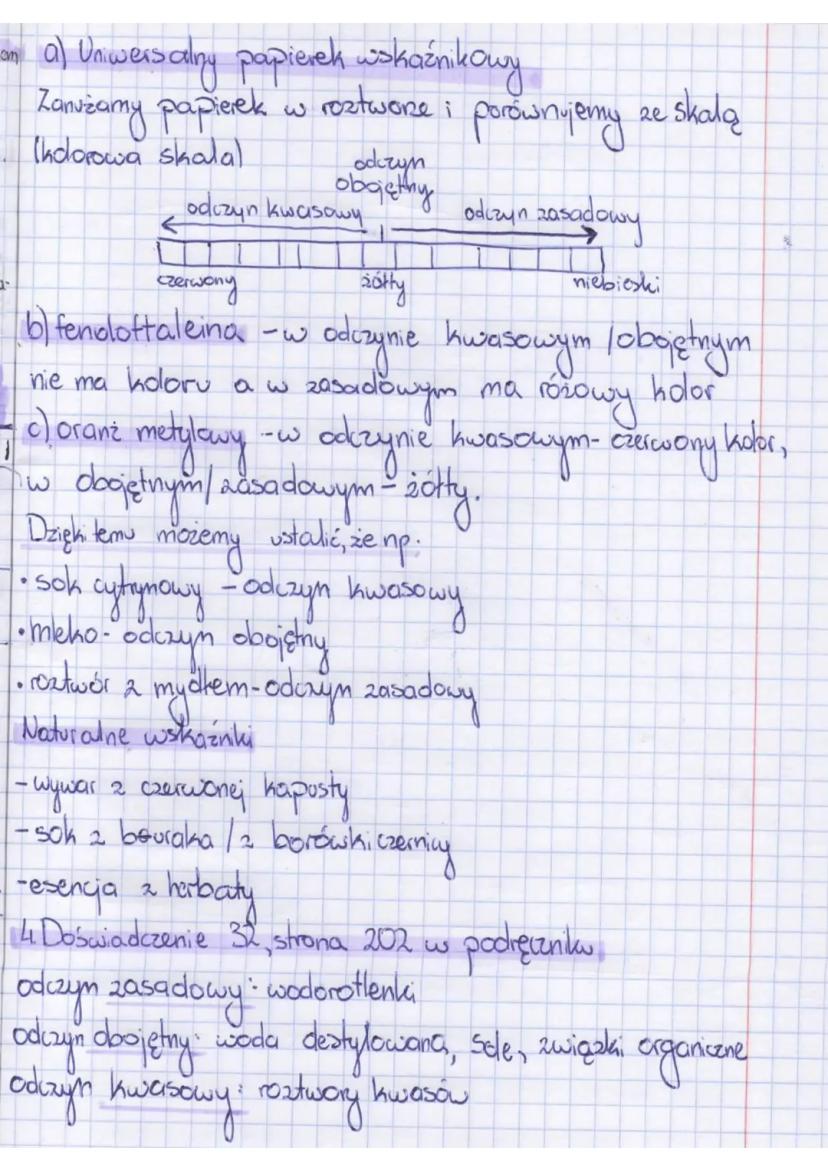 a) Uniwersalny papierek wskaźnikowy
Zanużamy papierek w roztworze i porównujemy ze skalą
(kolorowa skala)
odczyn
obojętny
odczyn kwasowy
odczyn zasadowy
czerwony żółty niebieski
b) fenoloftaleina - w odczynie kwasowym / obojętnym
nie ma koloru a w zasadowym ma różowy kolor
c) oranż metylowy - w odczynie kwasowym - czerwony kolor,
w obojętnym/zasadowym - żółty.
Dzięki temu możemy ustalić, że np.
• sok cytrynowy - odczyn kwasowy
• mleko - odczyn obojętny
• roztwór z mydłem - odczyn zasadowy
Naturalne wskaźniki
- wywar z czerwonej kapusty
- sok z buraka / z borówki czernicy
- esencja z herbaty
4. Doświadczenie 32, strona 202 w podręczniku
odczyn zasadowy: wodorotlenki
odczyn obojętny: woda destylowana, sole, związki organiczne
odczyn kwasowy: roztwory kwasów